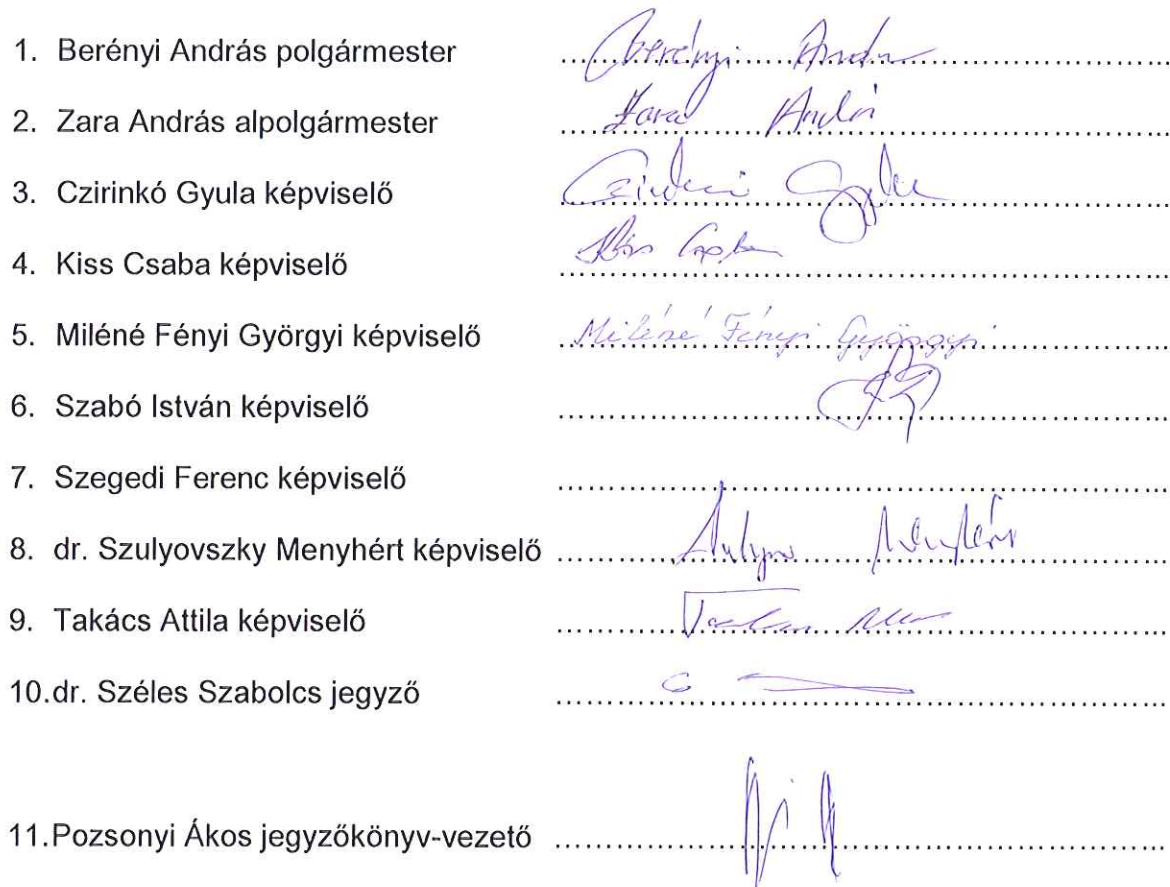 1. Berényi András polgármester ........ Berényi András
2. Zara András alpolgármester ........ Zara András
3. Czirinkó Gyula képviselő ........ Gyula
4. Kiss Csaba képviselő ........ Kiss Csaba
5. Miléné Fényi Györgyi képviselő ........ Miléné Fényi Györgyi
6. Szabó István képviselő ........
7. Szegedi Ferenc képviselő ........
8. dr. Szulyovszky Menyhért képviselő ........ Menyhért
9. Takács Attila képviselő ........ Takács Attila
10.dr. Széles Szabolcs jegyző ........
11.Pozsonyi Ákos jegyzőkönyv-vezető ........